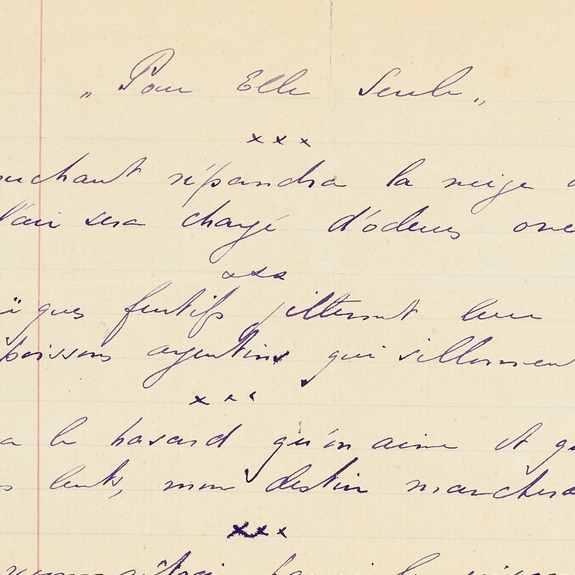 „ Pour Elle Seule „
x x x
répandra la neige
l'air sera chargé d'odeurs
x x x
furtifs jetteront leur
poissons argentins qui sillonnent
x x x
le hasard qu'on aime et
lents, mon destin marchera
x x x